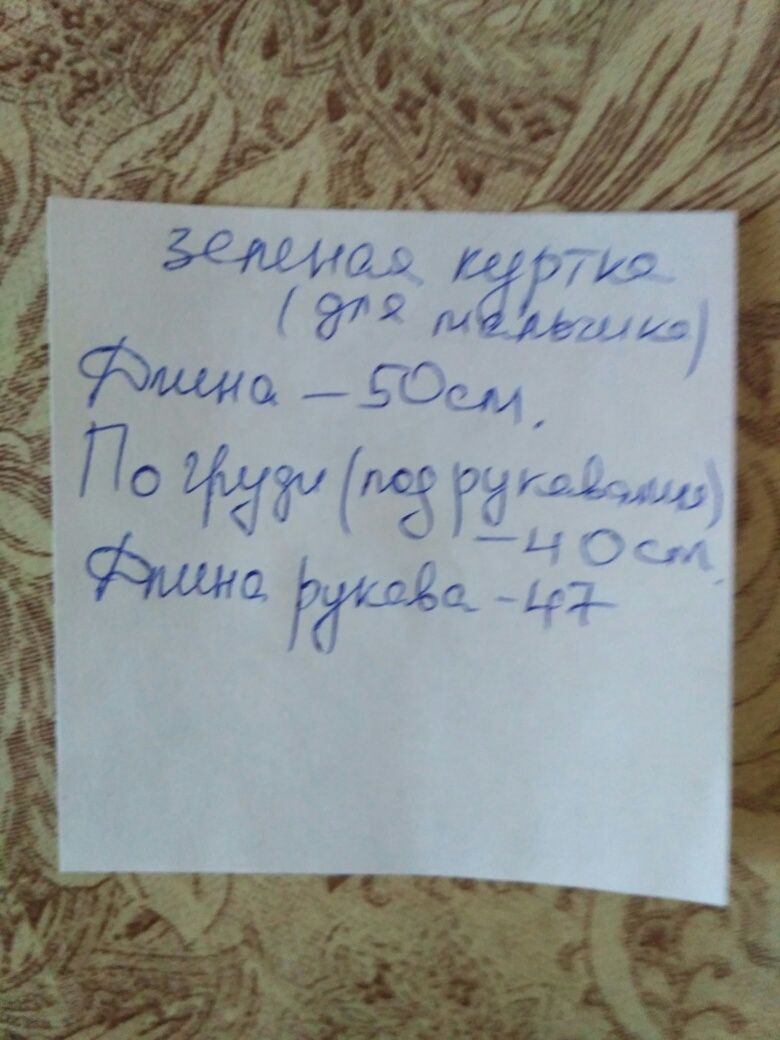 зеленая куртка
(для мальчика)
Длина – 50см.
По груди (под рукавами)
– 40см.
Длина рукава - 47